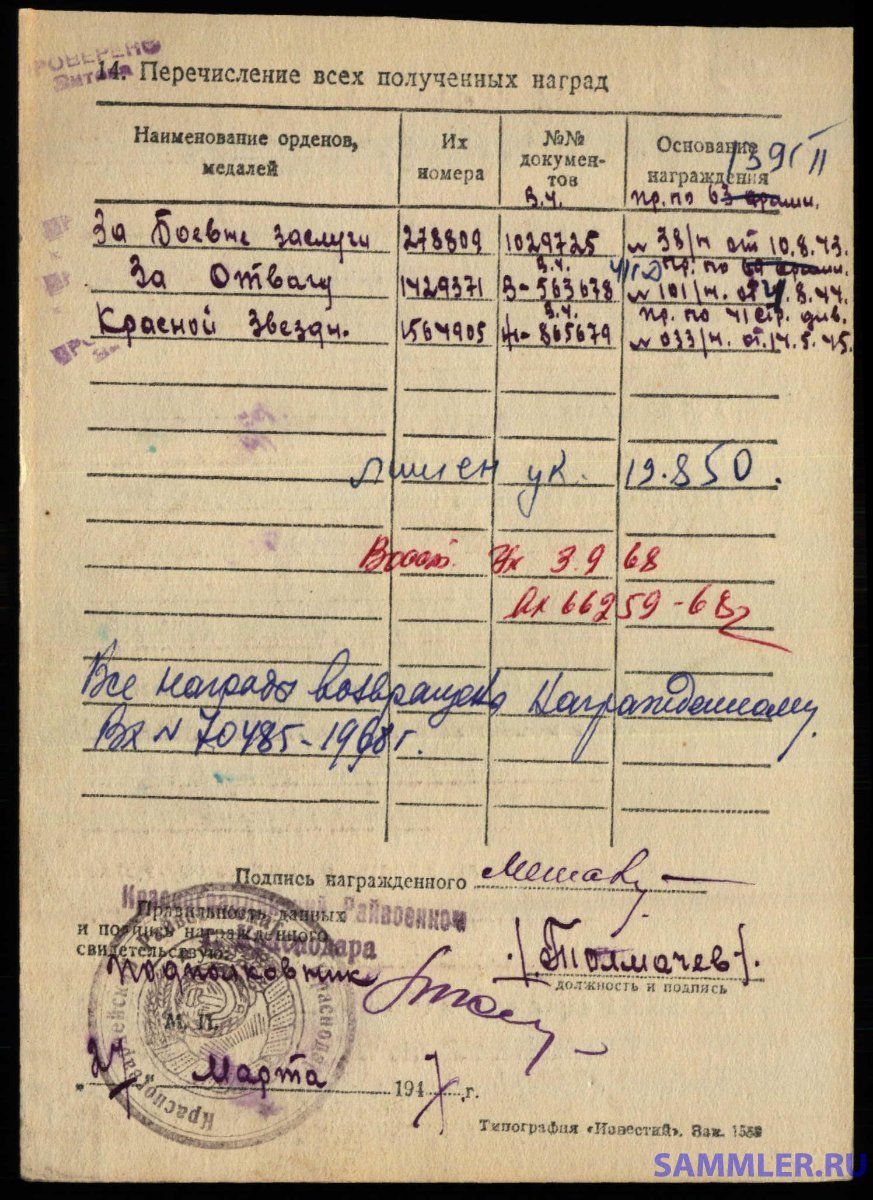 ПРОВЕРЕНО
14. Перечисление всех полученных наград
Наименование орденов, медалей
Их номера
№№ документов
Основание награждения
139 гII
В.ч.
пр. по 63 армии.
За Боевые заслуги 278809 1029725 № 38/н от 10.8.43.
В.ч. 41 сд пр. по 69 армии.
За Отвагу 1429371 В-563678 № 101/н. от 4.8.44.
В.ч. пр. по 41 стр. див.
Красной Звезды. 1564905 Ж-865679 № 033/н. от 14.5.45.
лишен ук. 19.850.
Восст. Ук 3.9 68
Вх 66259-68
Все награды возвращены награжденному.
Вх № 70485-1968 г.
Подпись награжденного
Красногвардейский Райвоенком
Правильность данных
и подпись награжденного
Краснодара
свидетельствую:
подполковник /Толмачев/.
должность и подпись
М. П.
24 Марта 1947 г.
Типография «Известий». Зак. 1559
SAMMLER.RU